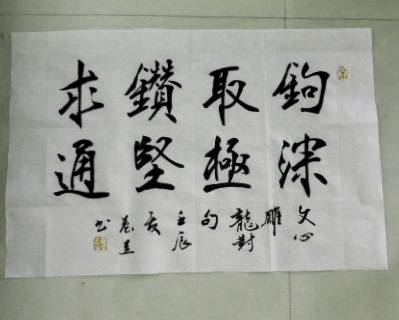 鉤深
取極
鑽堅
求通
文心
雕
龍對
句
壬辰
书